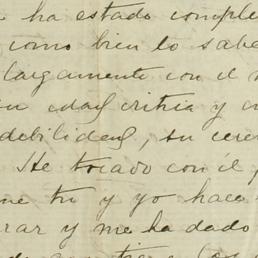 ha estado comple
como bien lo sabe
largamente con el
edad critica y
debilidad, su cere
He tocado con el
me tu y yo hace
rar y me ha dado